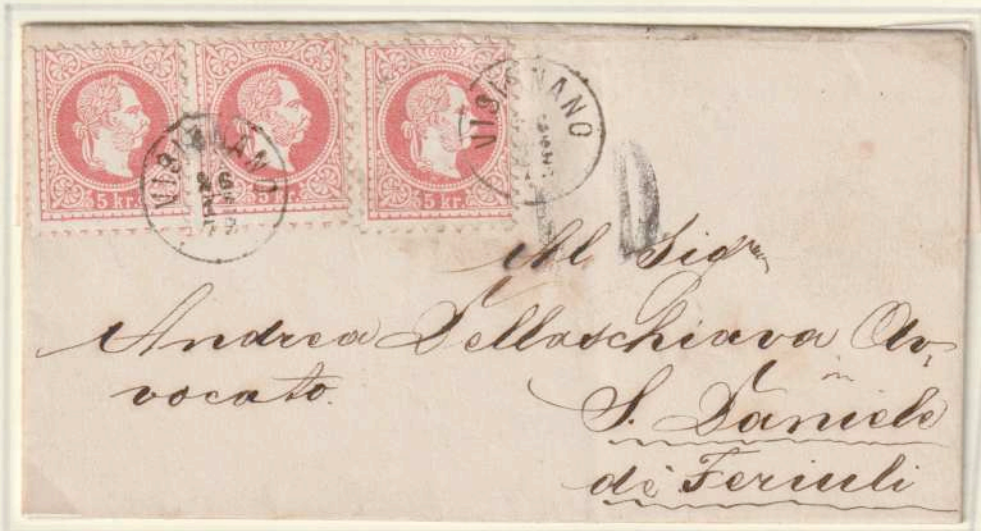 5 kr.
5 kr.
5 kr.
VISIGNANO
VISIGNANO
Al Sigr
Andrea Dellaschiava Av=
vocato.
in
S. Daniele
di Feriuli